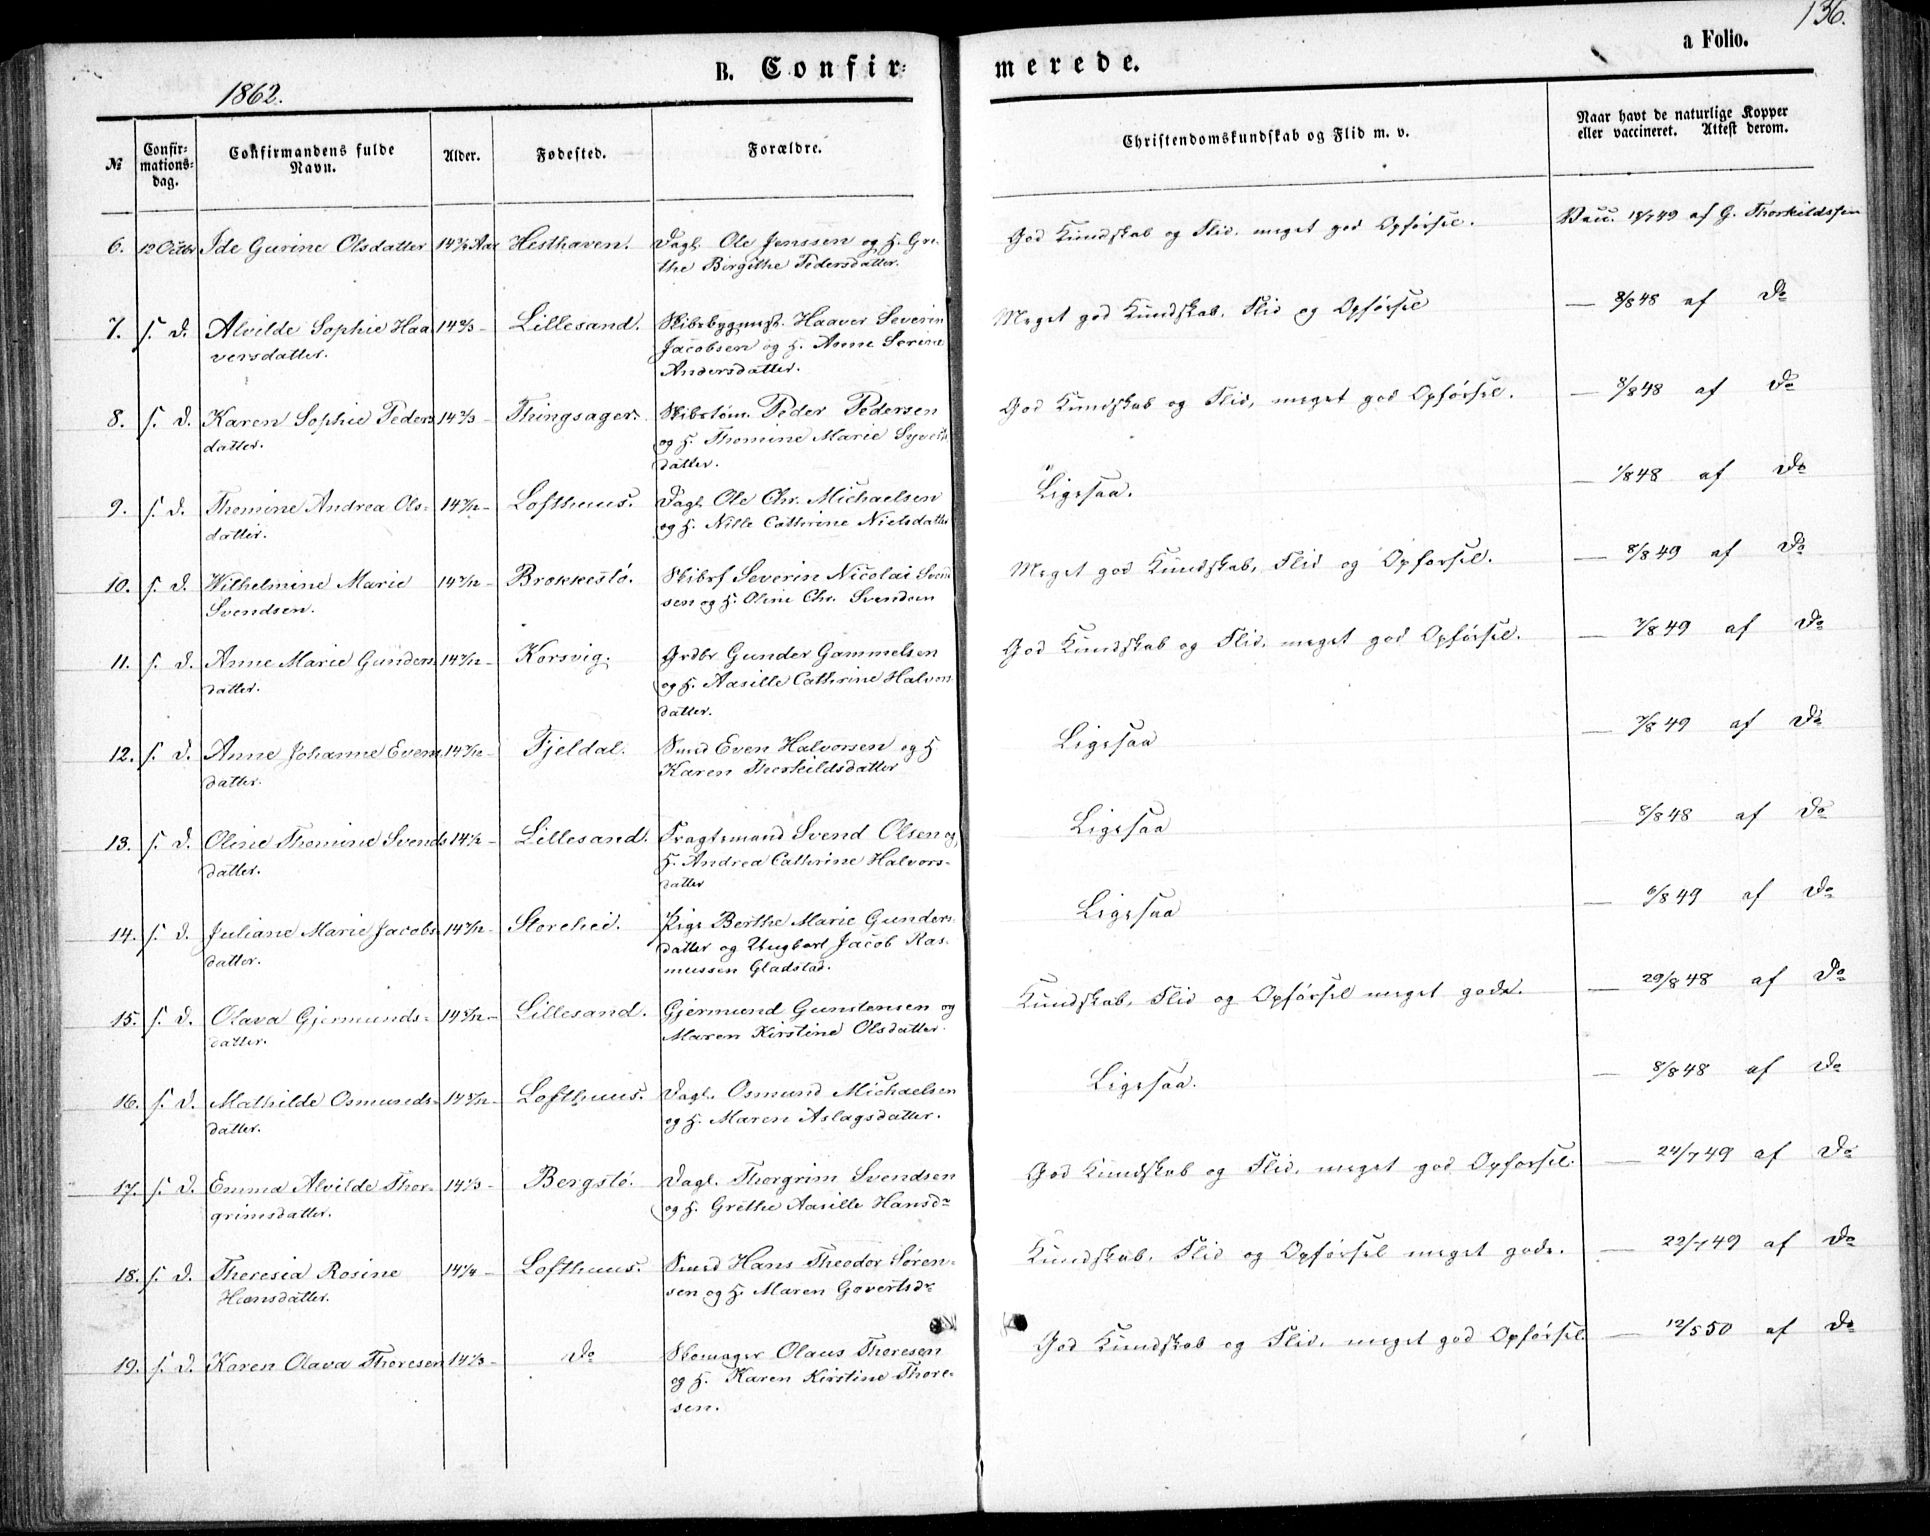 136.
a Folio.
B. Confir-
merede.
1862.
№
Confir-
mations-
dag.
Confirmandens fulde
Navn.
Alder.
Fødested.
Forældre.
Christendomskundskab og Flid m. v.
Naar havt de naturlige Kopper
eller vaccineret. Attest derom.
6. 12 Octbr Ide Gurine Olsdatter Hesthaven. Dagl. Ole Jenssen og H. Gre-
the Birgithe Pedersdatter.
God Kundskab og Flid, meget god Opførsel. Vacc. 18/7 49 af G. Thorkildssen
7. s. D. Alvilde Sophie Haa 14 2/3 - Lillesand. Skibsbygmst. Haaver Severin
versdatter. Jacobsen og H. Anne Serine
Andersdatter.
Meget god Kundskab, Flid og Opførsel — 8/8 48 af Do
8. s. D. Karen Sophie Peders 14 2/3 - Thingsager. Skibstøm. Peder Pedersen
datter. og H. Thomine Marie Syverts
datter.
God Kundskab og Flid, meget god Opførsel. — 8/8 48 af Do
9. s. D. Thomine Andrea Ols- Lofthuus. Dagl. Ole Chr. Michaelsen
datter. og H. Nille Cathrine Nielsdatter
Ligesaa. — 1/8 48 af Do
10. s. D. Wilhelmine Marie Brekkestø. Skibsf Severin Nicolai Svend
Svendsen. sen og H. Oline Chr. Svendsen
Meget god Kundskab, Flid og Opførsel. — 8/8 49 af Do
11. s. D. Anne Marie Gunders Korsvig. Grdbr Gunder Gammelsen
datter. og H. Aasille Cathrine Halvors
datter.
God Kundskab og Flid, meget god Opførsel. — 7/8 49 af Do
12. s. D. Anne Johanne Evens Fjeldal. Smed Even Halvorsen og H
datter. Karen Therkildsdatter
Ligesaa — 7/8 49 af Do
13. s. D. Oline Thomine Svends 14 1/2 - Lillesand. Fragtemand Svend Olsen og
datter. H. Andrea Cathrine Halvors-
datter
Ligesaa — 8/8 48 af Do
14. s. D. Juliane Marie Jacobs- Storehei. Pige Berthe Marie Gunders-
datter. datter og Ungkarl Jacob Ras-
mussen Gladstad.
Ligesaa — 6/8 49 af Do
15. s. D. Olava Gjermunds- Lillesand. Gjermund Gunstensen og
datter. Maren Kirstine Olsdatter.
Kundskab, Flid og Opførsel meget gode. — 29/8 48 af Do
16. s. D. Mathilde Osmunds- Lofthuus. Dagl. Osmund Michaelsen
datter. og H. Maren Aslagsdatter.
Ligesaa. — 8/8 48 af Do
17. s. D. Emma Alvilde Thor- 14 1/3 - Bergstø. Dagl. Thorgrim Svendsen
grimsdatter. og H. Grethe Aasille Hansdr
God Kundskab og Flid, meget god Opførsel. — 24/7 49 af Do
18. s. D. Theresia Rosine 14 1/4 - Lofthuus. Smed Hans Theodor Søren-
Hansdatter. sen og H. Maren Govertsdr
Kundskab, Flid og Opførsel meget gode. — 22/7 49 af Do
19. s. D. Karen Olava Thoresen 14 1/3 - Do Skomager Olaus Thoresen
og H. Karen Kirstine Thore-
sen.
God Kundskab og Flid, meget god Opførsel. — 12/5 50 af Do